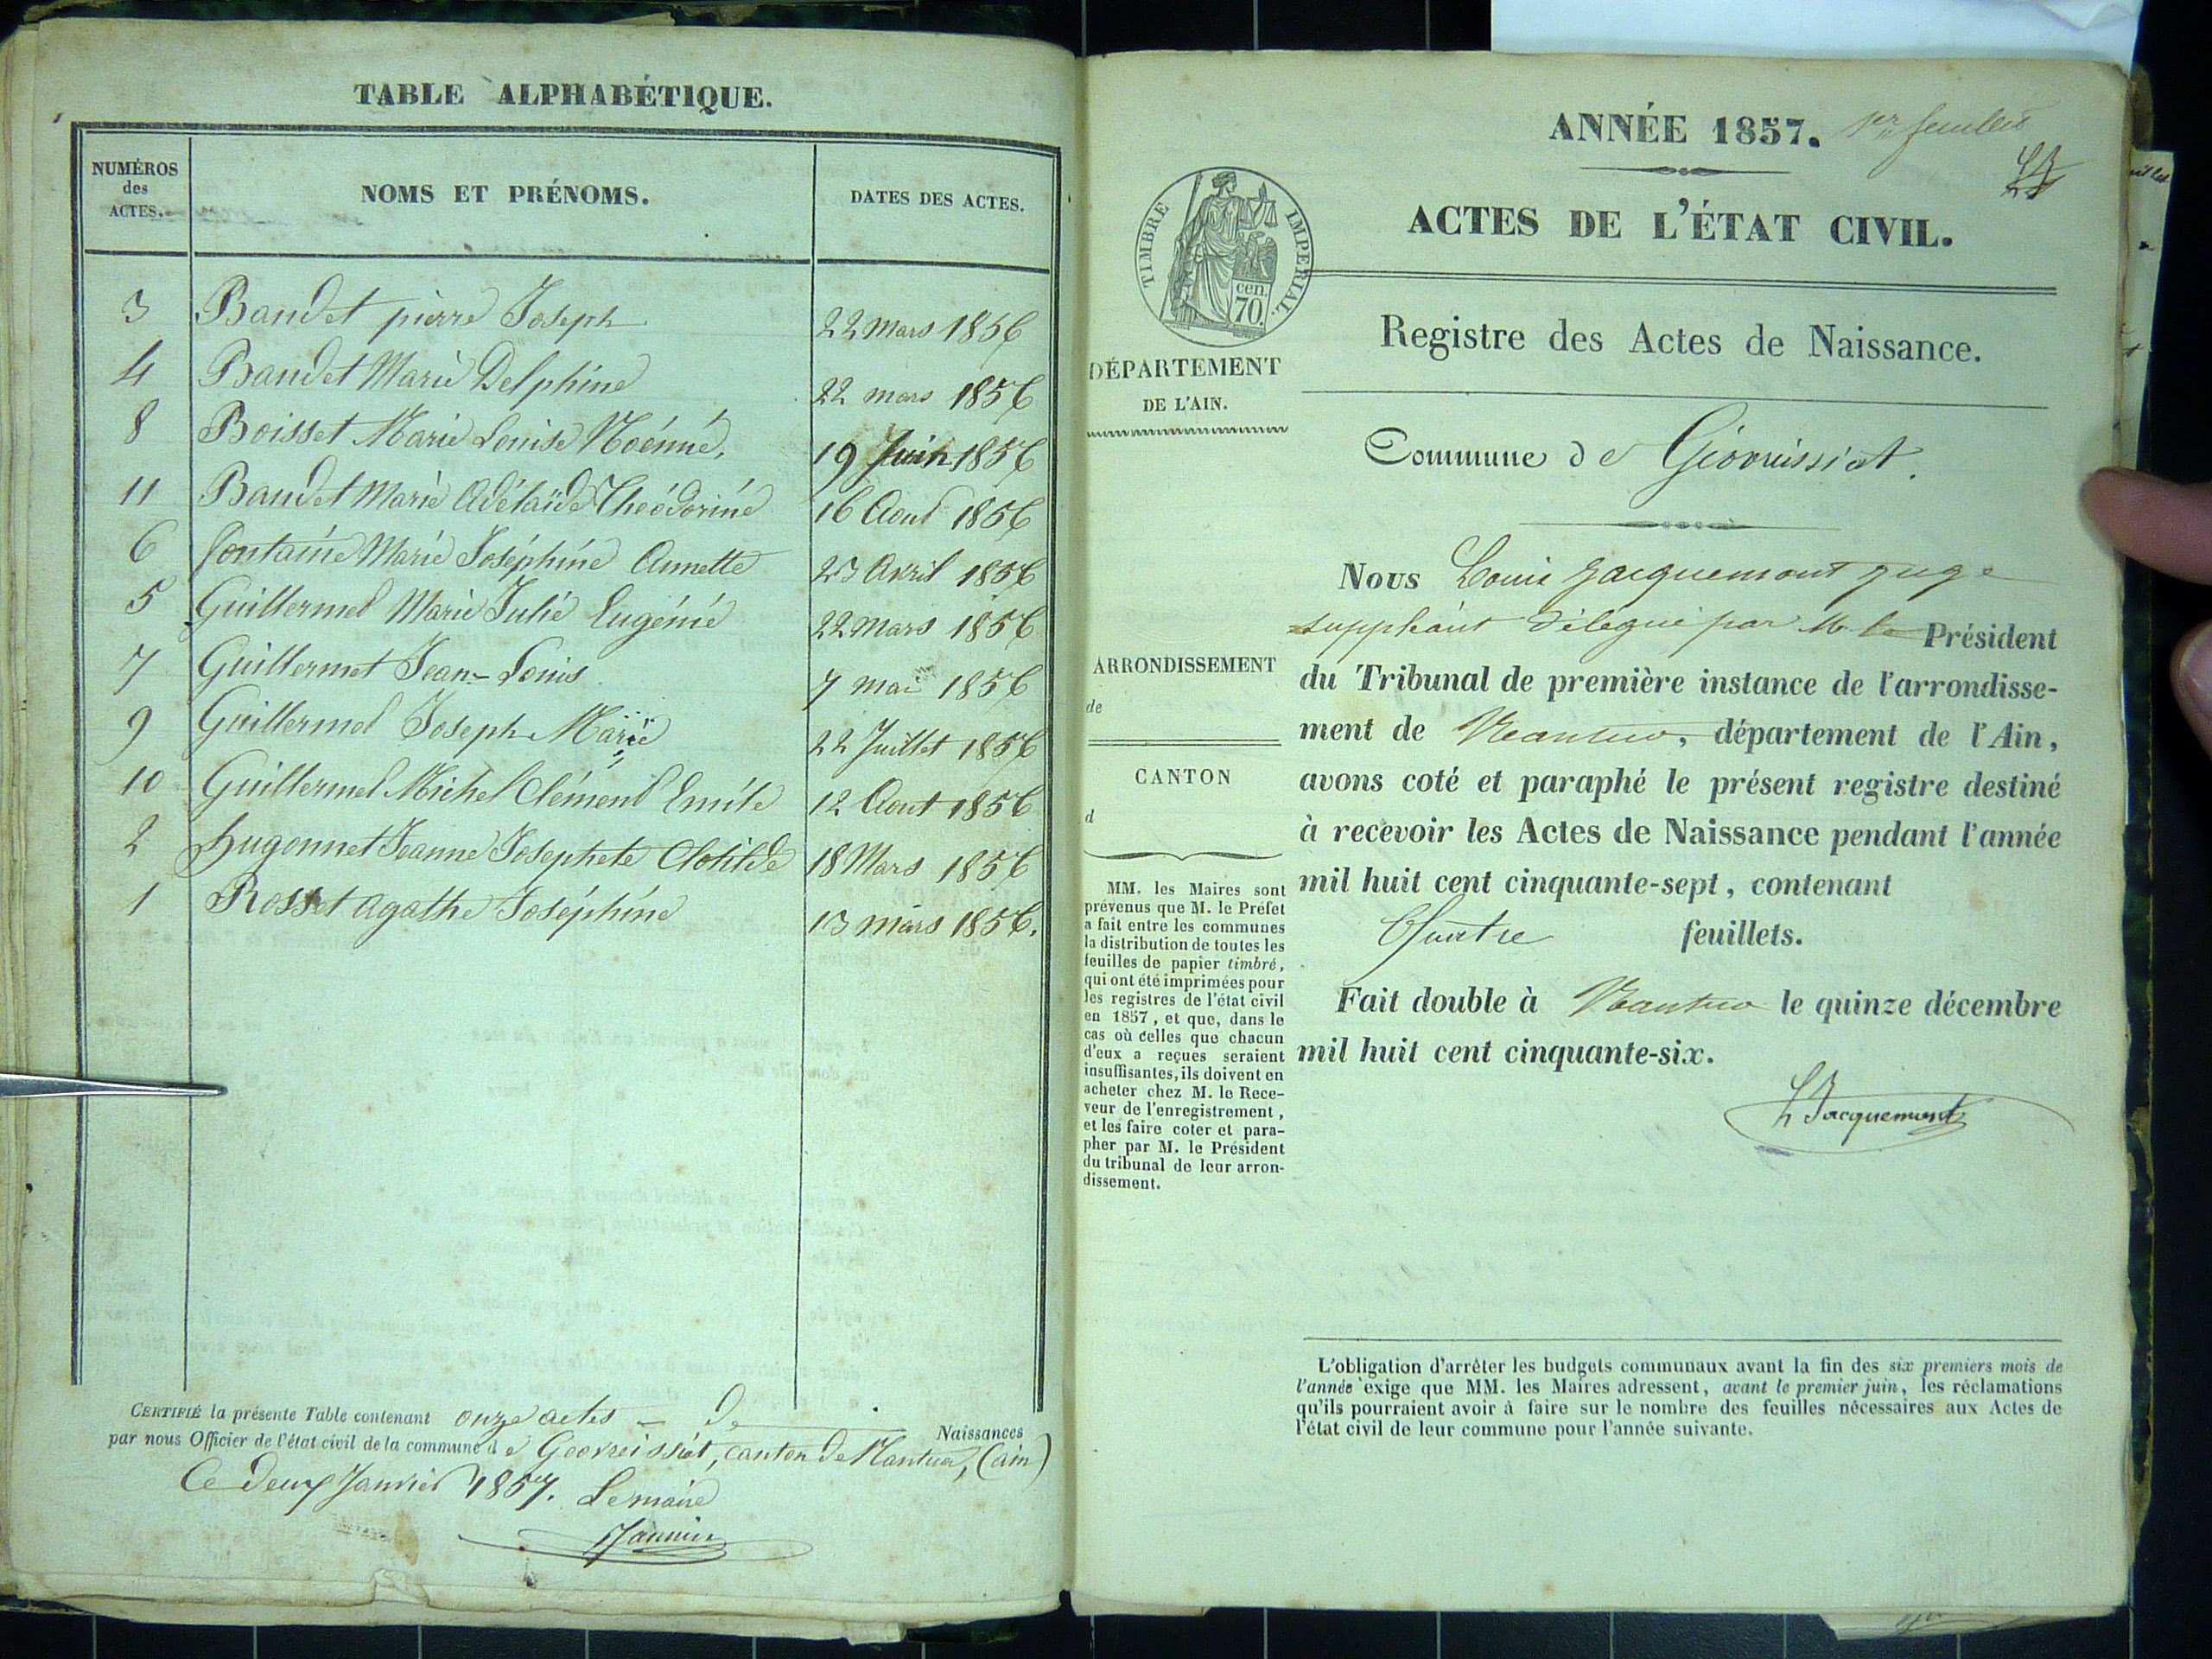 TABLE ALPHABÉTIQUE.
NUMÉROS
des
ACTES.
NOMS ET PRÉNOMS.
DATES DES ACTES.
3 Baudet pierre Joseph 22 mars 1856
4 Baudet Marie Delphine 22 mars 1856
8 Boisset Marie Louise Noémie, 19 Juin 1856
11 Baudet Marie Adélaïde Théodorine 16 Aout 1856
6 fontaine Marie Joséphine Annette 23 Avril 1856
5 Guillermet Marie Julie Eugénie 22 mars 1856
7 Guillermet Jean-Louis 7 mai 1856
9 Guillermet Joseph Marie 22 Juillet 1856
10 Guillermet Michel Clément Emile 12 Aout 1856
2 hugonnet Jeanne Josephete Clotilde 18 Mars 1856
1 Rosset agathe Joséphine 13 mars 1856.
CERTIFIÉ la présente Table contenant onze actes – de Naissances
par nous Officier de l'état civil de la commune de Geovreissiat, canton de Nantua, (ain)
Ce deux Janvier 1857. Le maire
ANNÉE 1857. 1er feuillet
ACTES DE L'ÉTAT CIVIL.
TIMBRE IMPÉRIAL.
cen.
70.
Registre des Actes de Naissance.
DÉPARTEMENT
DE L'AIN.
Commune de Géovreissiat.
Nous Louis Jacquemont juge
suppléant délégué par M. le Président
du Tribunal de première instance de l'arrondisse-
ment de Nantua, département de l'Ain,
avons coté et paraphé le présent registre destiné
à recevoir les Actes de Naissance pendant l'année
mil huit cent cinquante-sept, contenant
Quatre feuillets.
Fait double à Nantua le quinze décembre
mil huit cent cinquante-six.
L Jacquemont
ARRONDISSEMENT
de
CANTON
d
MM. les Maires sont
prévenus que M. le Préfet
a fait entre les communes
la distribution de toutes les
feuilles de papier timbré,
qui ont été imprimées pour
les registres de l'état civil
en 1857, et que, dans le
cas où celles que chacun
d'eux a reçues seraient
insuffisantes, ils doivent en
acheter chez M. le Rece-
veur de l'enregistrement,
et les faire coter et para-
pher par M. le Président
du tribunal de leur arron-
dissement.
L'obligation d'arrêter les budgets communaux avant la fin des six premiers mois de
l'année exige que MM. les Maires adressent, avant le premier juin, les réclamations
qu'ils pourraient avoir à faire sur le nombre des feuilles nécessaires aux Actes de
l'état civil de leur commune pour l'année suivante.